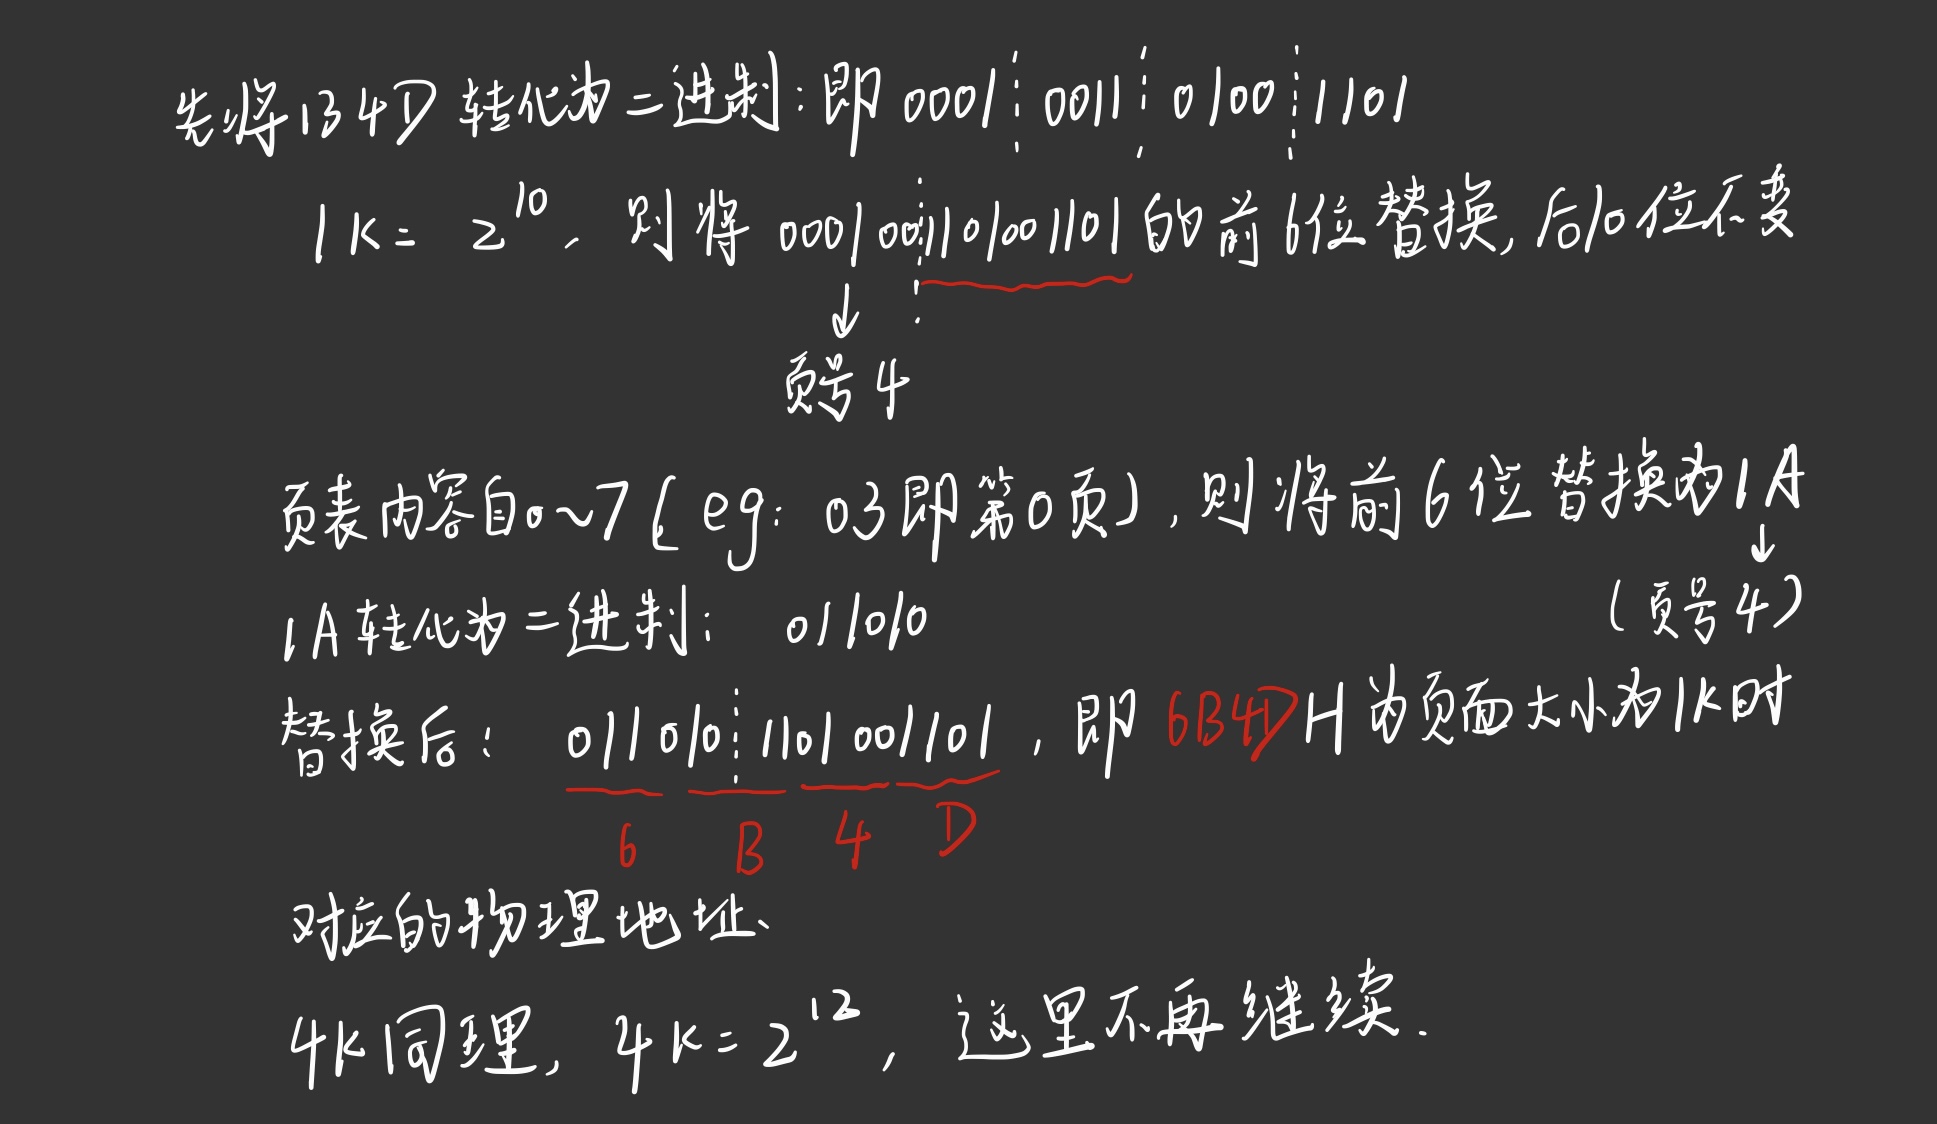 先将134D转化为二进制：即 0001 0011 0100 1101
1K= 2^10，则将 0001001101001101的前6位替换，后10位不变
↓
页号4
页表内容自0~7（eg：03即第0页），则将前6位替换为1A
↓
1A转化为二进制：011010
（页号4）
替换后：0110101101001101，即 6B4DH为页面大小为1K时
6 B 4 D
对应的物理地址、
4K同理，4K=2^12，这里不再继续.